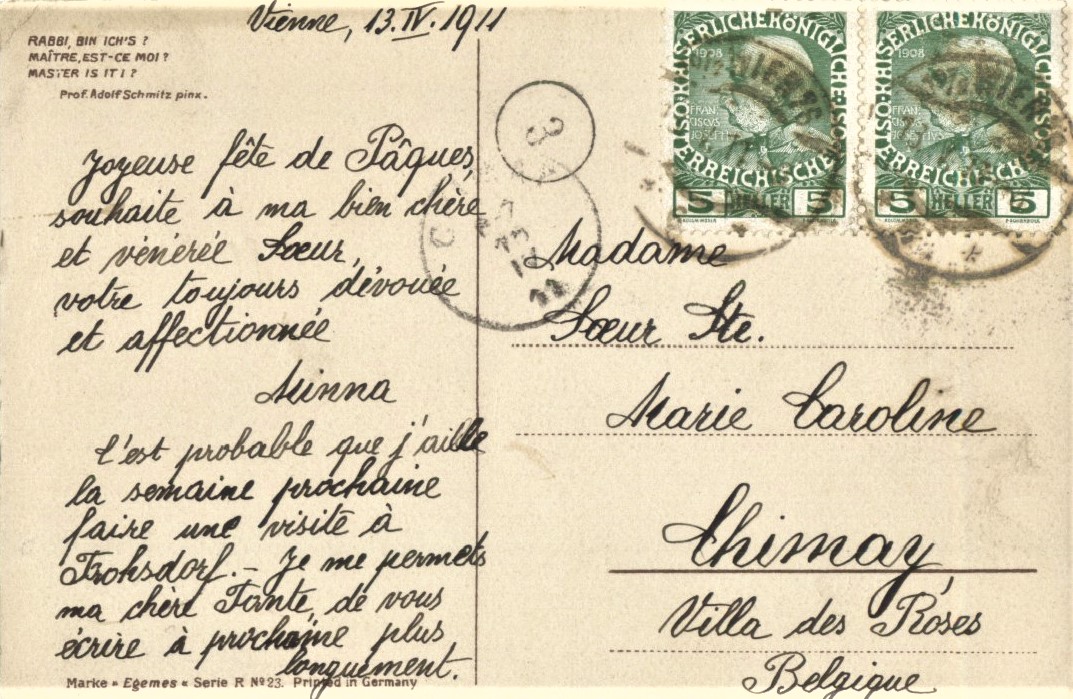 Vienne, 13.IV.1911
RABBI, BIN ICH'S ?
MAÎTRE, EST-CE MOI ?
MASTER IS IT I ?
Prof. Adolf Schmitz pinx.
Joyeuse fête de Pâques,
souhaite à ma bien chère
et vénérée Sœur,
votre toujours dévouée
et affectionnée
Minna
C'est probable que j'aille
la semaine prochaine
faire une visite à
Frohsdorf. – Je me permets
ma chère Tante, de vous
écrire à prochaine plus
longuement.
Marke » Egemes « Serie R Nº 23. Printed in Germany
3
KAISERLICHE KÖNIGLICHE
ÖSTERREICHISCHE
1908
FRAN
CISCVS
IOSEPHVS
5 HELLER 5
KAISERLICHE KÖNIGLICHE
ÖSTERREICHISCHE
1908
FRAN
CISCVS
IOSEPHVS
5 HELLER 5
Madame
Sœur Ste.
Marie Caroline
Chimay
Villa des Roses
Belgique